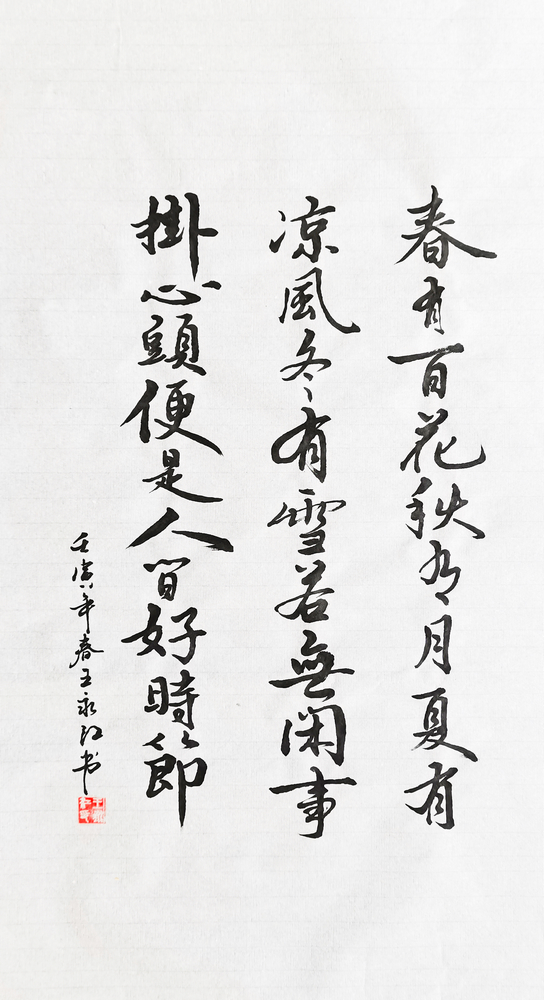 春有百花秋有月夏有
凉風冬有雪若無閑事
掛心頭便是人間好時節
壬寅年春王永红书